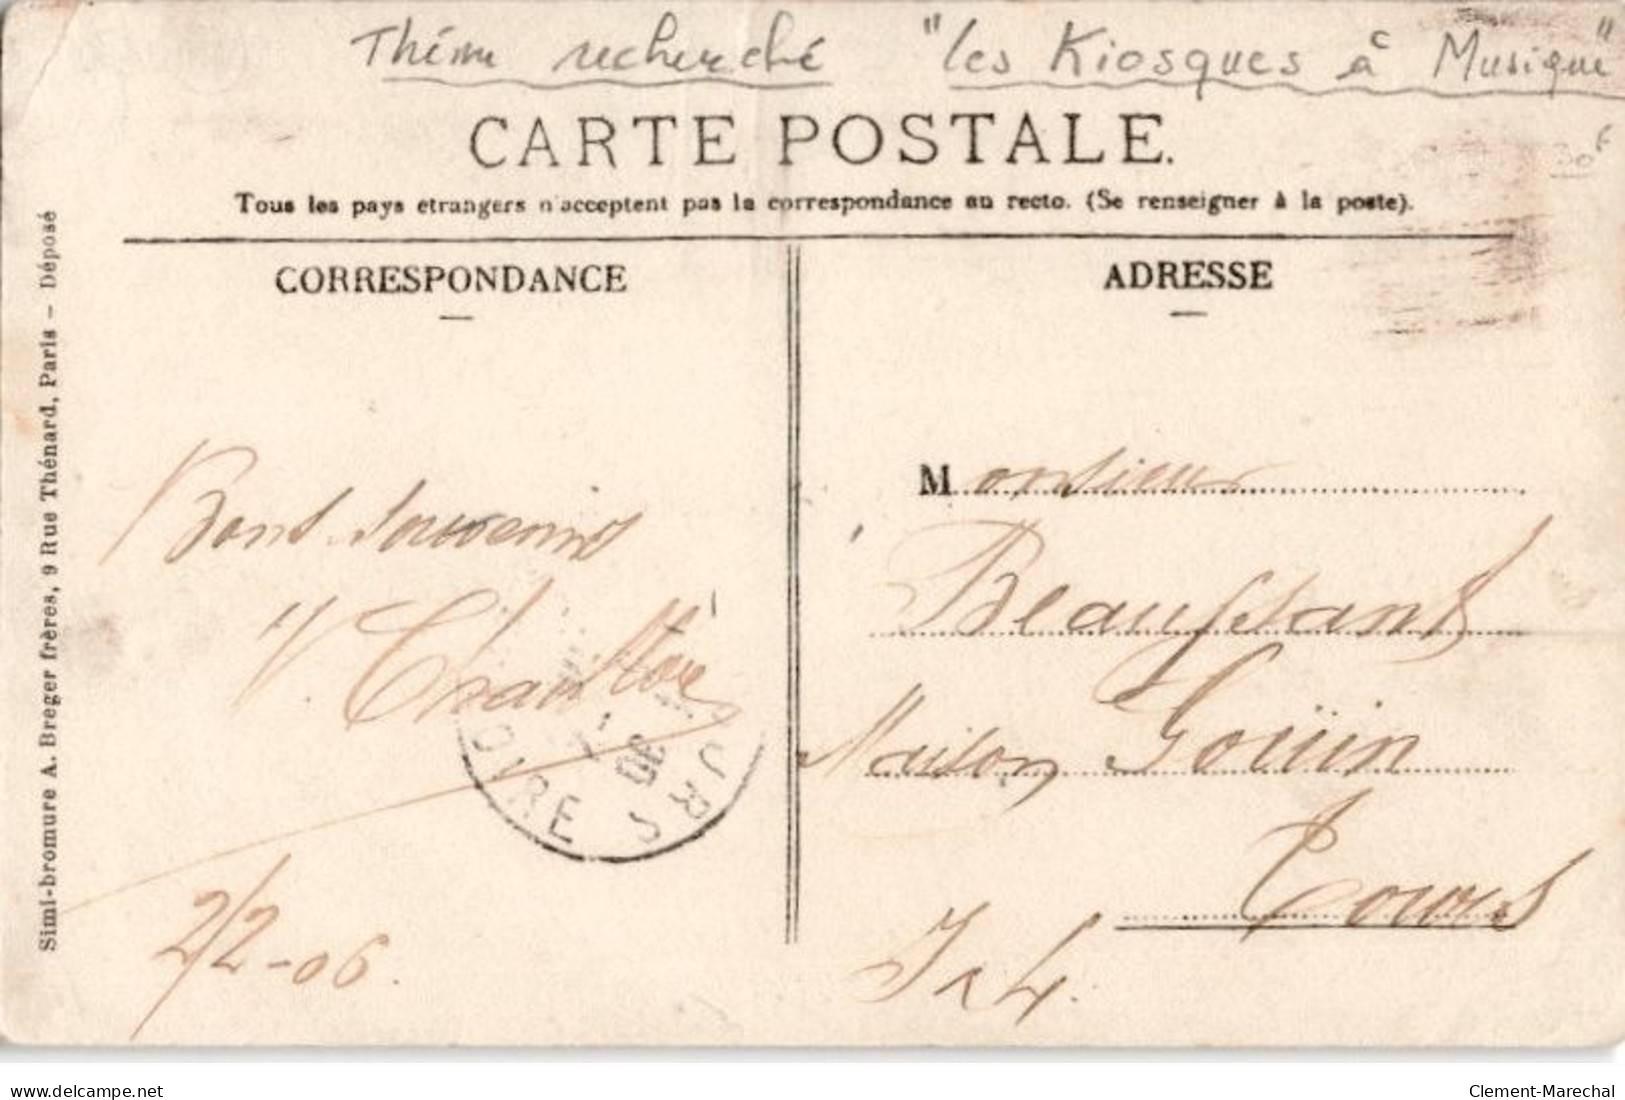 Thème recherché "les Kiosques à Musique"
30F
CARTE POSTALE.
Tous les pays etrangers n'acceptent pas la correspondance au recto. (Se renseigner à la poste).
CORRESPONDANCE
ADRESSE
Simi-bromure A. Breger frères, 9 Rue Thénard, Paris – Déposé
Bons souvenirs
2/2-06.
Monsieur
Beaufstants
Maison Goüin
Tours
I & L.
06
OIRE
URS
www.delcampe.net
Clement-Marechal